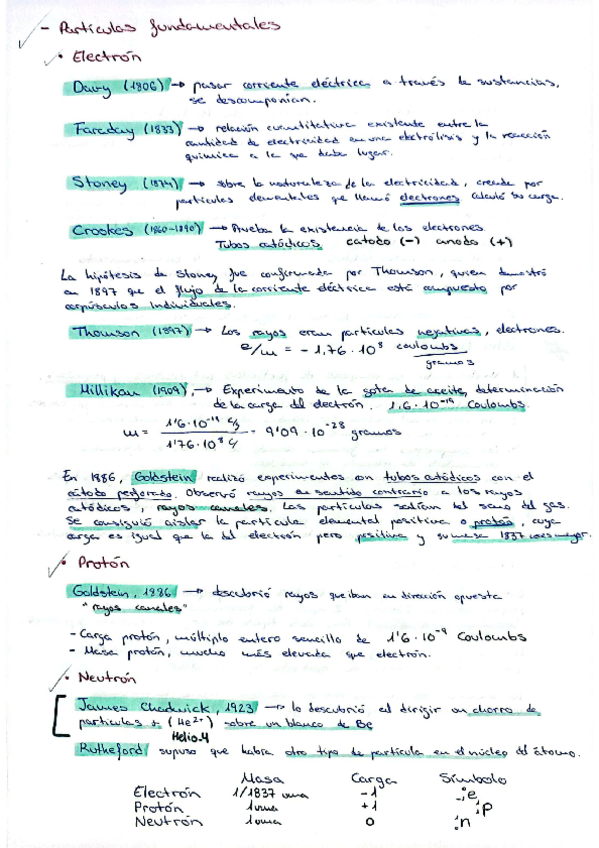 - Partículas fundamentales
• Electrón
Davy (1806) → pasar corriente eléctrica a través de sustancias,
se descomponían.
Faraday (1833) → relación cuantitativa existente entre la
cantidad de electricidad en una electrólisis y la reacción
química a la que daba lugar.
Stoney (1874) → sobre la naturaleza de la electricidad, creada por
partículas elementales que llamó electrones calculó su carga.
Crookes (1860-1890) → Prueba la existencia de los electrones.
Tubos catódicos catodo (-) anodo (+)
La hipótesis de Stoney fue confirmada por Thomson, quien demostró
en 1897 que el flujo de la corriente eléctrica está compuesto por
corpúsculos individuales.
Thomson (1897) → Los rayos eran partículas negativas, electrones.
e/m = -1,76·10⁸ coulombs
gramos
Millikan (1909) → Experimento de la gota de aceite, determinación
de la carga del electrón. 1.6·10⁻¹⁹ Coulombs.
m = 1'6·10⁻¹⁹ C/ / 1'76·10⁸ C/ = 9'09·10⁻²⁸ gramos
En 1886, Goldstein realizó experimentos con tubos catódicos con el
cátodo perforado. Observó rayos en sentido contrario a los rayos
catódicos, rayos canales. Las partículas salían del seno del gas.
Se consiguió aislar la partícula elemental positiva o protón, cuya
carga es igual que la del electrón pero positiva y su masa 1837 veces mayor.
• Protón
Goldstein, 1886 → descubrió rayos que iban en dirección opuesta
"rayos canales"
- Carga protón, múltiplo entero sencillo de 1'6·10⁻⁹ Coulombs
- Masa protón, mucho más elevada que electrón.
• Neutrón
James Chadwick, 1923 → lo descubrió al dirigir un chorro de
partículas (He²⁺) sobre un blanco de Be
Helio-4
Rutheford supuso que había otro tipo de partícula en el núcleo del átomo.
Masa Carga Símbolo
Electrón 1/1837 uma -1 e
Protón 1uma +1 p
Neutrón 1uma 0 n